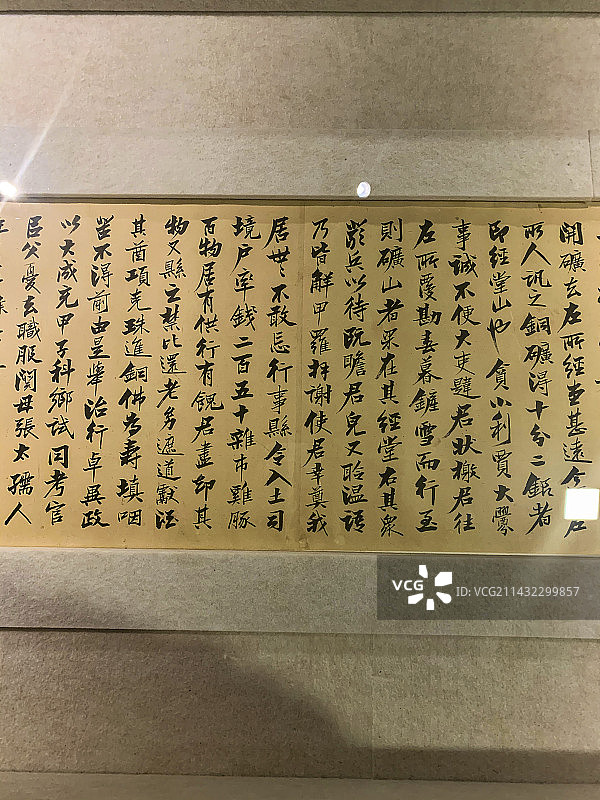 開礦去左所經堂甚遠今右
所人訊之銅礦得十分二鋁者
即經堂山也貪小利買大釁
事誠不便大吏韙君狀檄君往
左所覆勘春暮鏟雪而行至
則礦山者果在其經堂右其衆
嚴兵以待既瞻君皃又聆温語
乃皆解甲羅拜謝使君幸奠我
居世世不敢忘行事縣令入土司
境戶率錢二百五十雜市雞豚
百物居有供行有餽君盡卻其
物又縣之禁比還老多遮道獻酒
其酋項羌珠進銅佛為壽填咽
塋不得前由是舉治行卓異政
以大成充甲子科鄉試同考官
臣公憂去職服闋母張太孺人
VCG ID:VCG211432299857